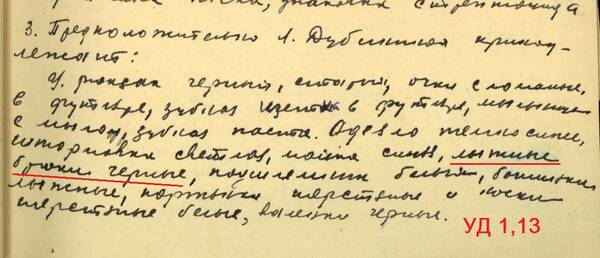 упаковка стрептоцида
3. Предположительно Л. Дубининой принад-
лежат:
1/. рюкзак черный, старый, очки сломаные,
в футляре, зубная щетка в футляре, мыльница
с мылом, зубная паста. Одеяло темносинее,
штормовка светлая, майка синяя, лыжные
брюки черные, белые, ботинки
лыжные, портянки шерстяные и носки
шерстяные белые, валенки черные.
УД 1,13